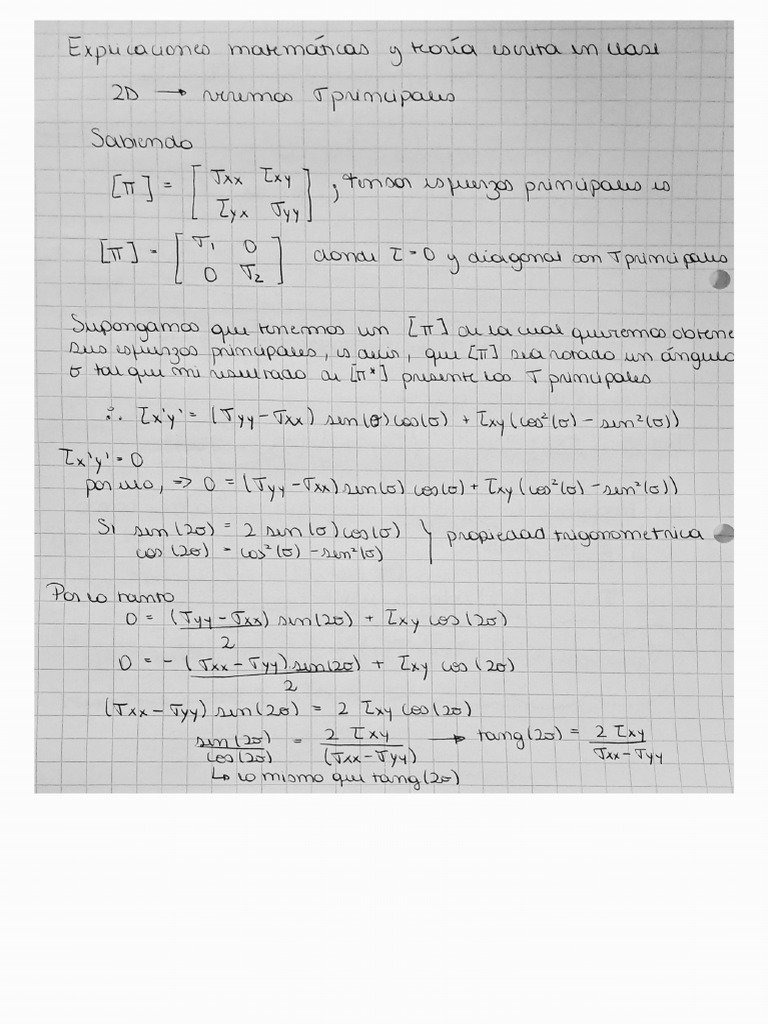 Explicaciones matemáticas y teoría escrita en clase
2D → veremos σ principales
Sabiendo
[π] = [σxx τxy; τyx σyy] , tensor esfuerzos principales es
[π] = [σ1 0; 0 σ2] donde τ = 0 y diagonal son σ principales
Supongamos que tenemos un [π] de la cual queremos obtene
sus esfuerzos principales, es decir, que [π] sea rotado un ángulo
θ tal que mi resultado de [π*] presente los σ principales
∴ τx'y' = (σyy - σxx) sen(θ)cos(θ) + τxy(cos²(θ) - sen²(θ))
τx'y' = 0
por ello, => 0 = (σyy - σxx)sen(θ) cos(θ) + τxy(cos²(θ) - sen²(θ))
Si sen(2θ) = 2 sen(θ)cos(θ) } propiedad trigonometrica
cos(2θ) = cos²(θ) - sen²(θ)
Por lo tanto
0 = (σyy - σxx)/2 sen(2θ) + τxy cos(2θ)
0 = - (σxx - σyy) sen(2θ)/2 + τxy cos(2θ)
(σxx - σyy) sen(2θ) = 2 τxy cos(2θ)
sen(2θ)/cos(2θ) = 2 τxy/(σxx - σyy) → tang(2θ) = 2 τxy/σxx - σyy
↳ lo mismo que tang(2θ)